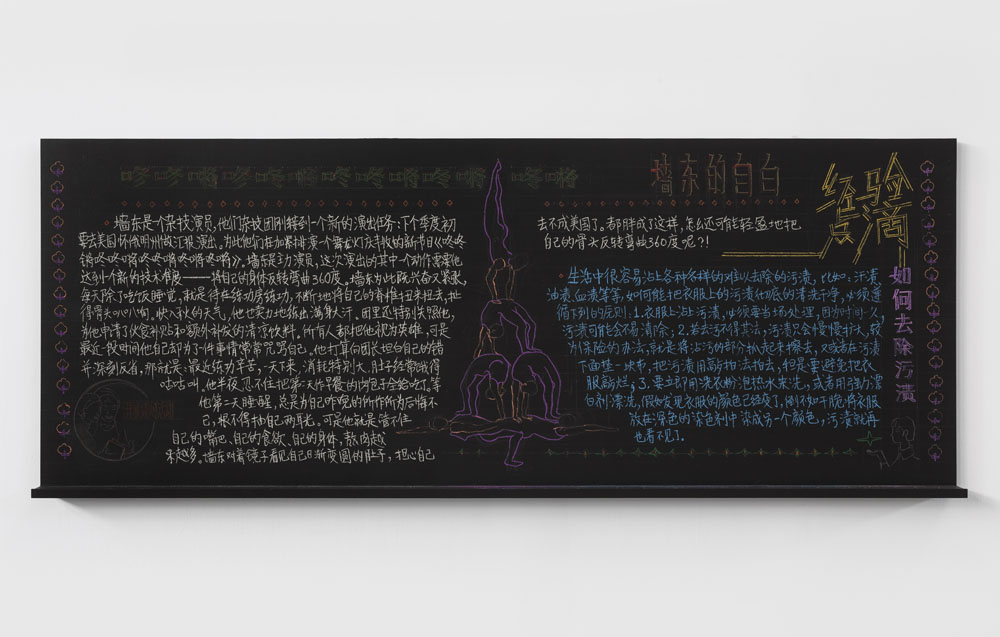 咚咚锵咚咚锵咚咚锵锵咚锵咚锵
墙东是个杂技演员，他们杂技团刚接到一个新的演出任务：下个季度初
要去美国怀俄明州做汇报演出。为此他们在加紧排演一个
锵咚咚锵咚咚锵咚锵咚锵》。墙东是主力演员，这次演出的其中个动作需要他
达到个新的技术难度——将自己的身体反转弯曲360度。墙东为此既兴奋又紧张，
每天除了吃饭睡觉，就是待在练功房练功，不断地将自己的脊椎扭来扭去，扯
得骨头叭叭响。快入秋的天气，他也卖力地练出满身大汗。团里还特别关照他，
为他申请了伙食补贴和额外补发的清凉饮料。所有人都把他视为英雄，可是
最近一段时间他自己却为了件事情常常咒骂自己。他打算向团长坦白自己的错
并深刻反省，那就是：最近练功辛苦，一天下来，消耗特别大，肚子经常饿得
咕咕叫，他半夜忍不住把第二天作早餐的肉包子全给吃了，等
他第二天睡醒，总是为自己昨晚的所作所为后悔不
已，恨不得抽自己两耳光。可是他就是管不住
自己的嘴巴、自己的食欲、自己的身体，熬肉越
来越多。墙东对着镜子看见自己日渐变圆的肚子，担心自己
墙东的自白
去不成美国了。都胖成了这样，怎么还可能轻盈地把
自己的骨头反转弯曲360度呢？！
经验
点滴
如何去除污渍
生活中很容易沾上各种各样的难以去除的污渍，比如：汗渍、
油渍、血渍等等，如何可能把衣服上的污渍彻底的清洗干净，必须遵
循下列的原则：1.衣服上沾上污渍，必须要当场处理，因为时间一久，
污渍可能会不易清除；2.若去污不得其法，污渍只会慢慢扩大，较
为保险的办法，就是将沾污的部分抓起来擦去，又或者在污渍
下面垫一块布，把污渍用刷子拍去拍去，但是要避免把衣
服刷烂；3.要立即用洗衣粉泡热水来洗，或者用强力漂
白剂漂洗，假如发现衣服的颜色已经变了，倒不如干脆将衣服
放在深色的染色剂中染成另一个颜色，污渍就再
也看不见了。